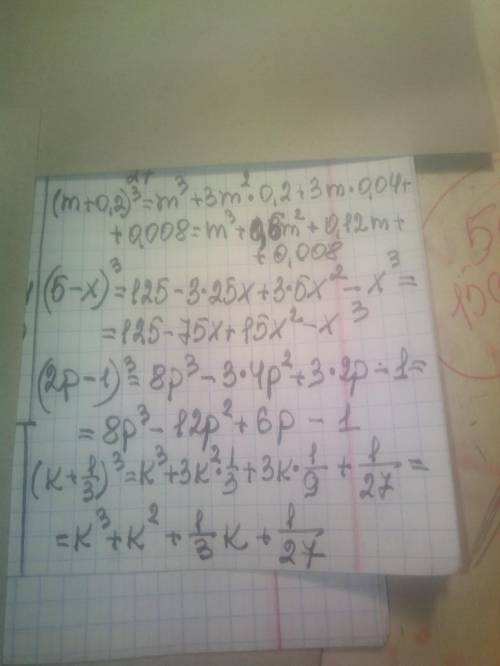 27
(m+0,2)³=m³+3m²·0,2+3m·0,04+
+0,008=m³+0,6m²+0,12m+
+0,008
(5-x)³=125-3·25x+3·5x²-x³=
=125-75x+15x²-x³
(2p-1)³=8p³-3·4p²+3·2p-1=
=8p³-12p²+6p-1
(k+1/3)³=k³+3k²·1/3+3k·1/9+1/27=
=k³+k²+1/3k+1/27